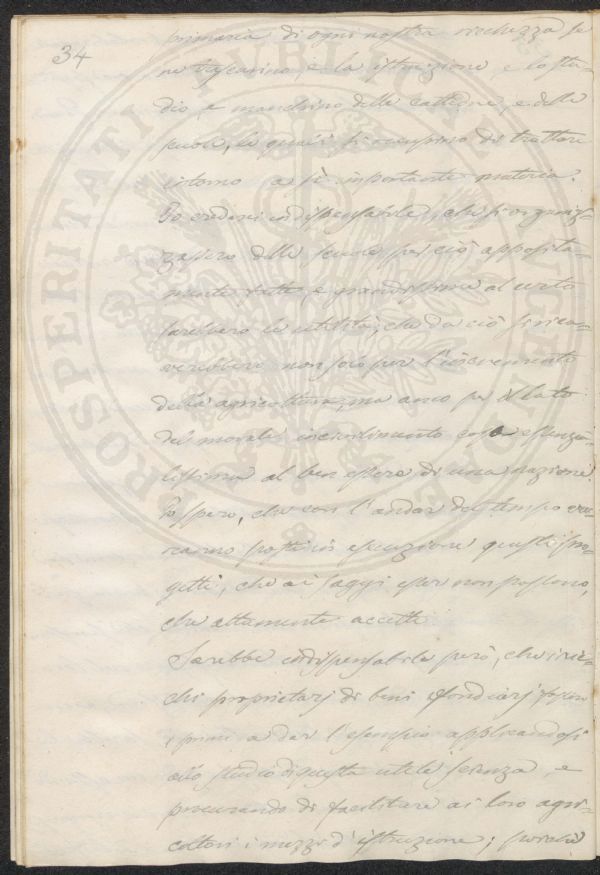 34
primaria di ogni nostra ricchezza se
ne trascurino, e la istruzione, e lo stu-
dio, e manchino delle cattedre, e delle
scuole, le quali si occupino di trattare
intorno a sì importante materia?
Io crederei indispensabile, che si organiz-
zassero delle scuole per ciò apposita-
mente fatte, e grandissime al certo
sarebbero le utilità, che da ciò si rica-
verebbero non solo per l'incremento
della agricoltura, ma anco per il lato
del morale incivilimento cosa essenzia-
lissima al ben essere di una nazione.
Io spero, che con l'andar del tempo ver-
ranno posti in esecuzione questi pro-
getti, che ai saggi esser non possono,
che altamente accetti.
Sarebbe indispensabile però, che i ric-
chi proprietarj di beni fondiarj fossero
i primi a dar l'esempio applicandosi
allo studio di questa utile scienza, e
procurando di facilitare ai loro agri-
coltori i mezzi d'istruzione; poiché
PROSPERITATI PUBLICAE AUGENDAE